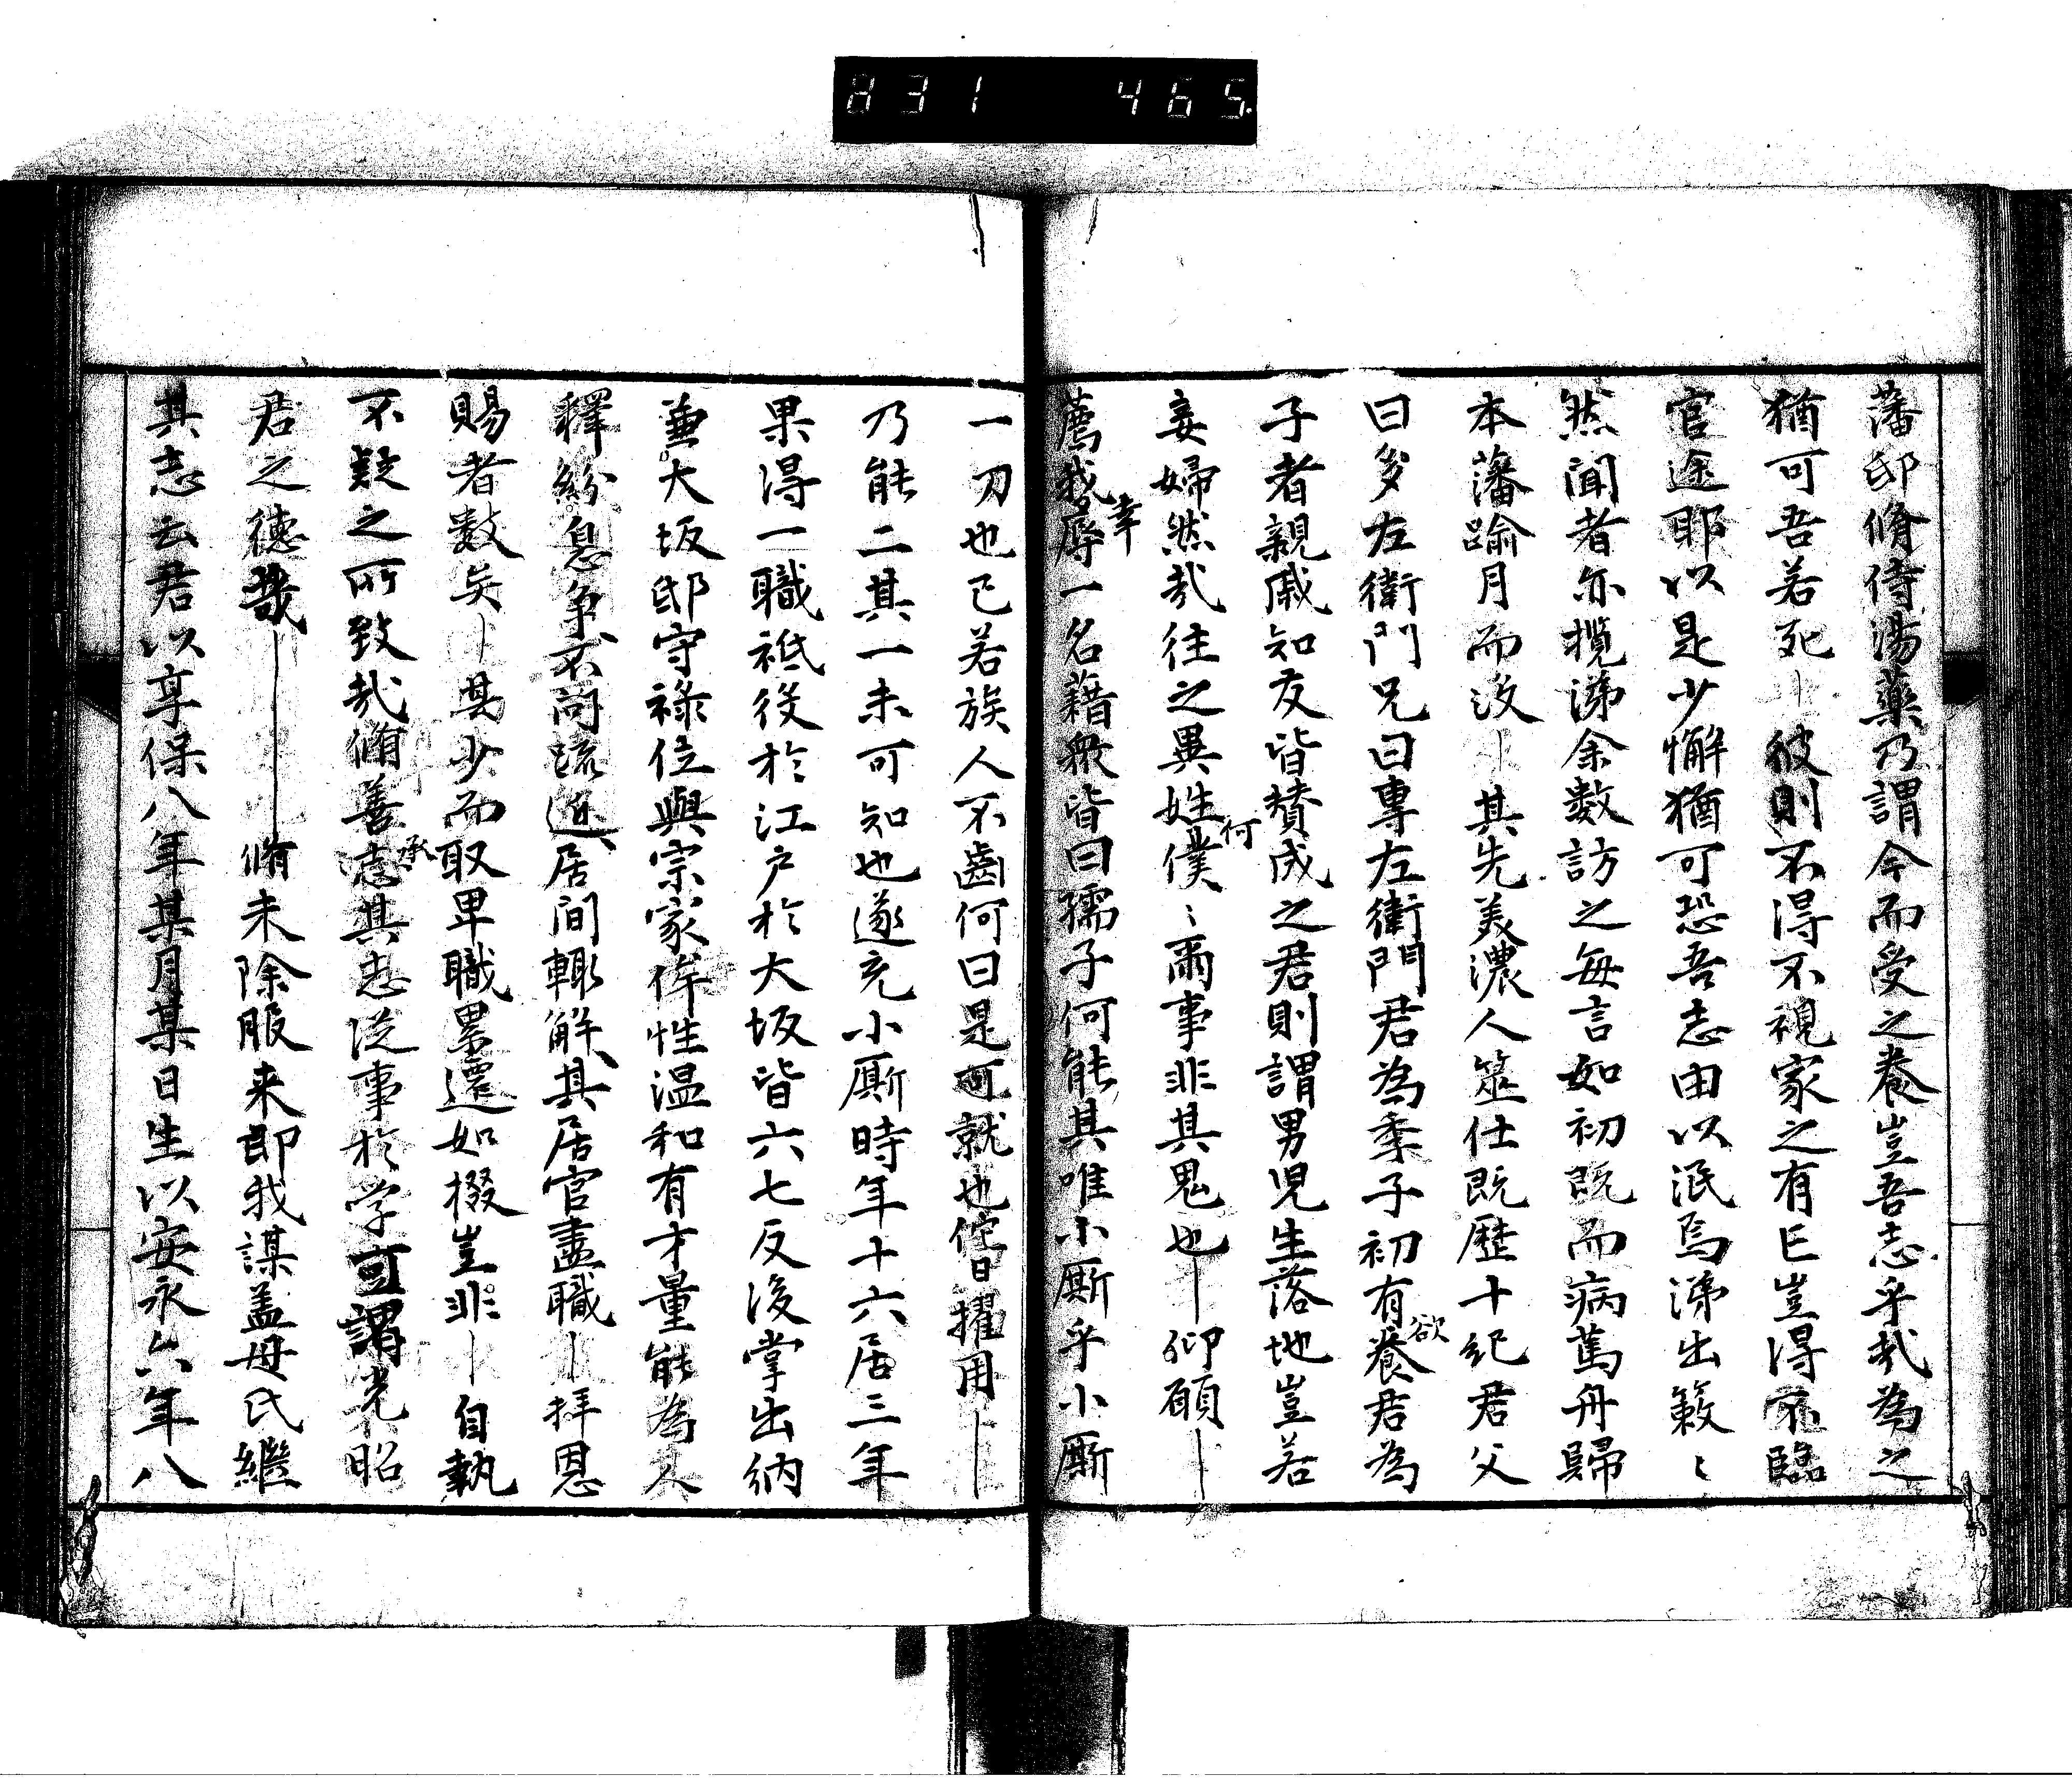 831 465.
藩邸脩侍湯藥乃謂今而受之養豈吾志乎哉為之
猶可吾若死彼則不得不視家之有亡豈得不臨
官途耶以是少懈猶可恐吾志由以泯焉涕出簌〻
然聞者亦攬涕余數訪之每言如初既而病篤舟歸
本藩踰月而沒其先美濃人筮仕既歷十紀君父
曰多左衛門兄曰專左衛門君為季子初有欲養君為
子者親戚知友皆賛成之君則謂男兒生落地豈若
妾婦然哉往之異姓何僕〻爾事非其鬼也仰願
薦我幸辱一名藉衆皆曰孺子何能其唯小厮乎小厮
一刀也已若族人不齒何曰是可就也侘日擢用
乃能二其一未可知也遂充小厮時年十六居三年
果得一職祗役於江戶於大坂皆六七反後掌出納
兼大坂邸守祿位與宗家侔性温和有才量能為人
釋紛息爭不問疏近居間輙解其居官盡職拜恩
賜者數矣其少而取卑職累遷如掇豈非自執
不疑之所致哉脩善承志其忠從事於学可謂光昭
君之德哉脩未除服来即我謀盖母氏繼
其志云君以享保八年某月某日生以安永六年八